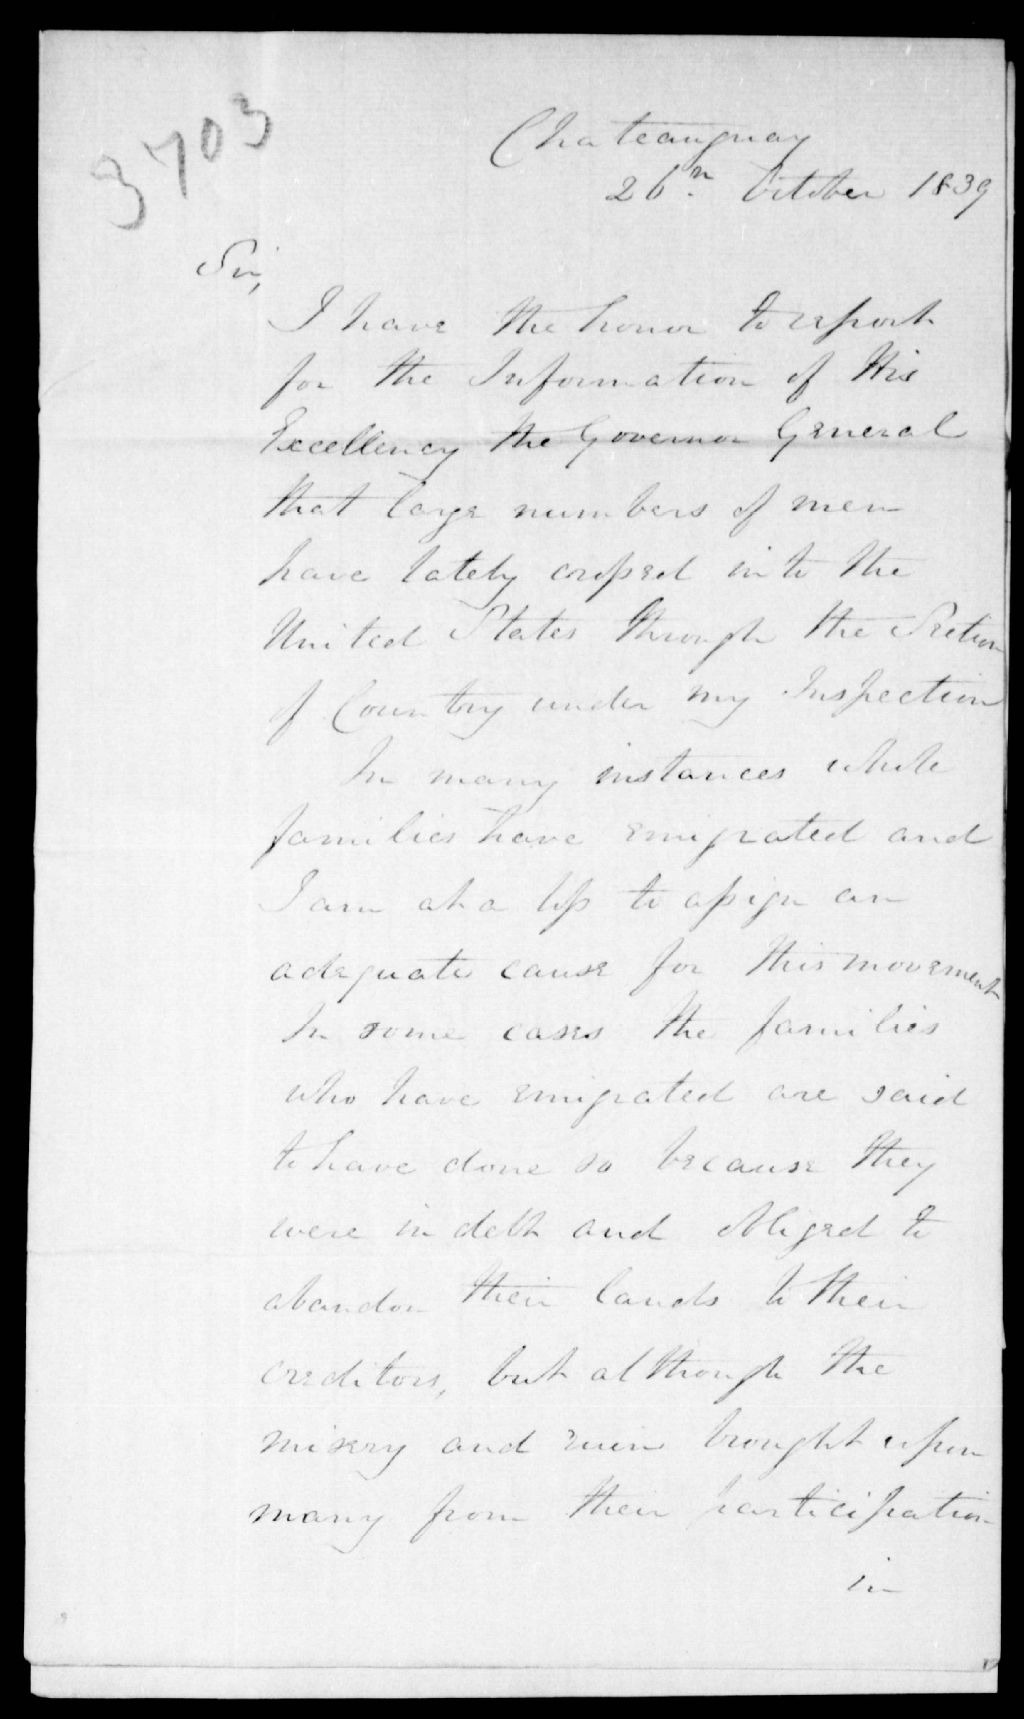 3703
Chateauguay
26th October 1839
Sir,
I have the honor to report
for the Information of His
Excellency the Governor General
that large numbers of men
have lately crossed into the
United States through the Section
of Country under my Inspection
In many instances whole
families have emigrated and
I am at a loss to assign an
adequate cause for this movement
In some cases the families
who have emigrated are said
to have done so because they
were in debt and obliged to
abandon their lands to their
creditors, but although the
misery and ruin brought upon
many from their participation
in